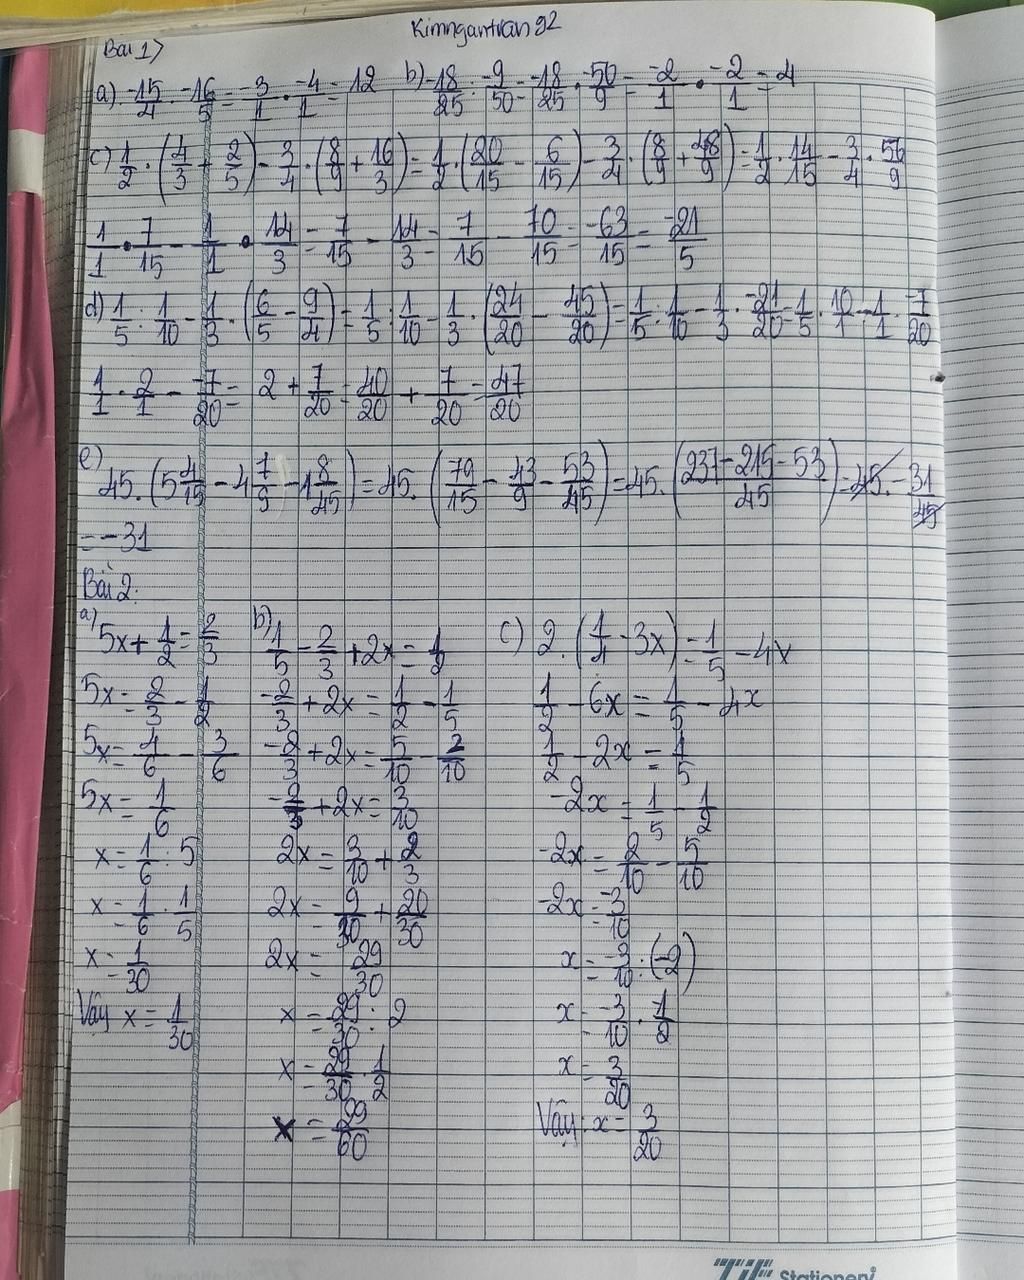 Kimngantran92
Bài 1>
a) -15/4 . -16/5 = -3/1 . -4/1 = 12 b) -18/25 : -9/50 = -18/25 . -50/9 = -2/1 . -2/1 = 4
c) 1/2 . (4/3 + 2/5) - 3/4 . (8/9 + 16/3) = 1/2 . (20/15 - 6/15) - 3/4 . (8/9 + 48/9) = 1/2 . 14/15 - 3/4 . 56/9
1/1 . 7/15 - 1/1 . 14/3 = 7/15 - 14/3 = 7/15 - 70/15 = -63/15 = -21/5
d) 1/5 : 1/10 - 1/3 . (6/5 - 9/4) = 1/5 : 1/10 - 1/3 . (24/20 - 45/20) = 1/5 : 1/10 - 1/3 . -21/20 = 1/5 . 10/1 - 1/1 . -7/20
1/1 . 2/1 - -7/20 = 2 + 7/20 = 40/20 + 7/20 = 47/20
e) 45. (5 4/15 - 4 7/9 - 1 8/45) = 45. (79/15 - 43/9 - 53/45) = 45. (237 - 215 - 53/45) = 45. -31/45
= -31
Bài 2:
a) 5x + 1/2 = 2/3
5x = 2/3 - 1/2
5x = 4/6 - 3/6
5x = 1/6
x = 1/6 : 5
x = 1/6 . 1/5
x = 1/30
Vậy x = 1/30
b) 1/5 - 2/3 + 2x = 1/2
-2/3 + 2x = 1/2 - 1/5
-2/3 + 2x = 5/10 - 2/10
-2/3 + 2x = 3/10
2x = 3/10 + 2/3
2x = 9/30 + 20/30
2x = 29/30
x = 29/30 : 2
x = 29/30 . 1/2
x = 29/60
c) 2. (1/4 - 3x) = 1/5 - 4x
1/2 - 6x = 1/5 - 4x
1/2 - 2x = 1/5
-2x = 1/5 - 1/2
-2x = 2/10 - 5/10
-2x = -3/10
x = -3/10 : (-2)
x = -3/10 . 1/2
x = 3/20
Vậy: x = 3/20
TiF Stationery